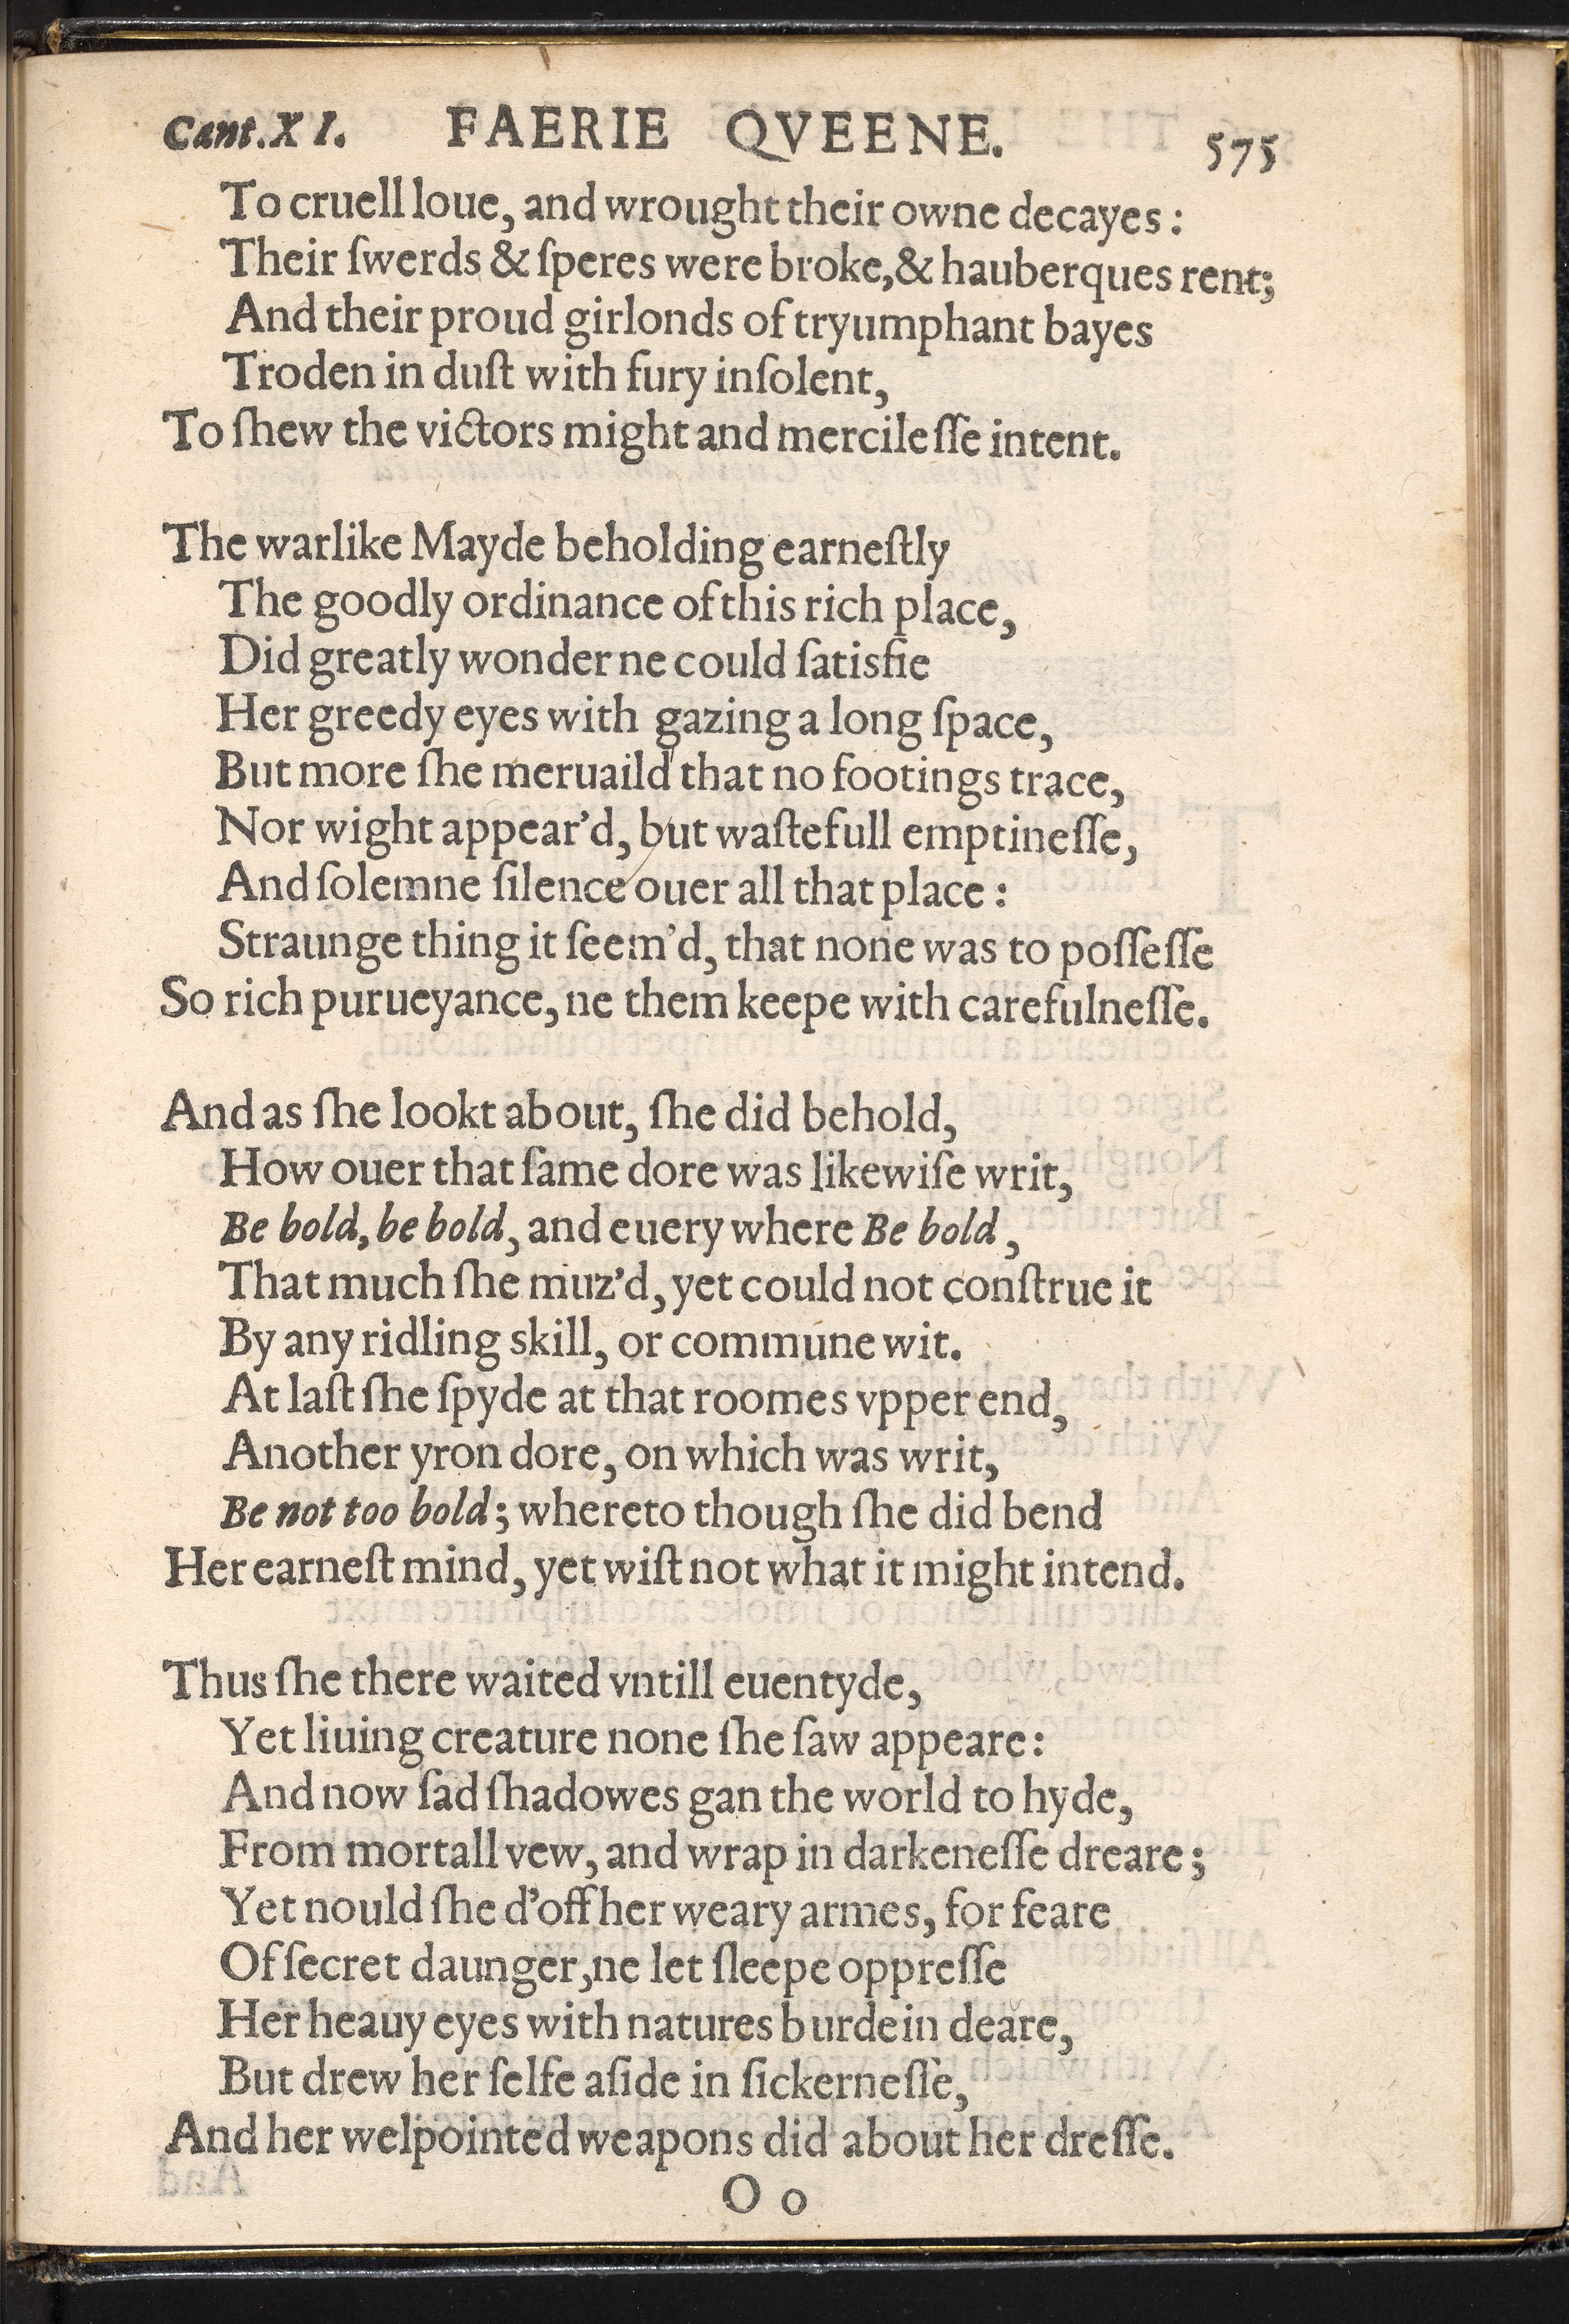 Cant. X I. FAERIE QVEENE. 575
To cruell loue, and wrought their owne decayes:
Their ſwerds & ſperes were broke, & hauberques rent;
And their proud girlonds of tryumphant bayes
Troden in duſt with fury inſolent,
To ſhew the victors might and mercileſſe intent.
The warlike Mayde beholding earneſtly
The goodly ordinance of this rich place,
Did greatly wonder ne could ſatisfie
Her greedy eyes with gazing a long ſpace,
But more ſhe meruaild that no footings trace,
Nor wight appear'd, but waſtefull emptineſſe,
And ſolemne ſilence ouer all that place:
Straunge thing it ſeem'd, that none was to poſſeſſe
So rich purueyance, ne them keepe with carefulneſſe.
And as ſhe lookt about, ſhe did behold,
How ouer that ſame dore was likewiſe writ,
Be bold, be bold, and euery where Be bold,
That much ſhe muz'd, yet could not conſtrue it
By any ridling skill, or commune wit.
At laſt ſhe ſpyde at that roomes vpper end,
Another yron dore, on which was writ,
Be not too bold; whereto though ſhe did bend
Her earneſt mind, yet wiſt not what it might intend.
Thus ſhe there waited vntill euentyde,
Yet liuing creature none ſhe ſaw appeare:
And now ſad ſhadowes gan the world to hyde,
From mortall vew, and wrap in darkeneſſe dreare;
Yet nould ſhe d'off her weary armes, for feare
Of ſecret daunger, ne let ſleepe oppreſſe
Her heauy eyes with natures burdein deare,
But drew her ſelfe aſide in ſickerneſſe,
And her welpointed weapons did about her dreſſe.
O o